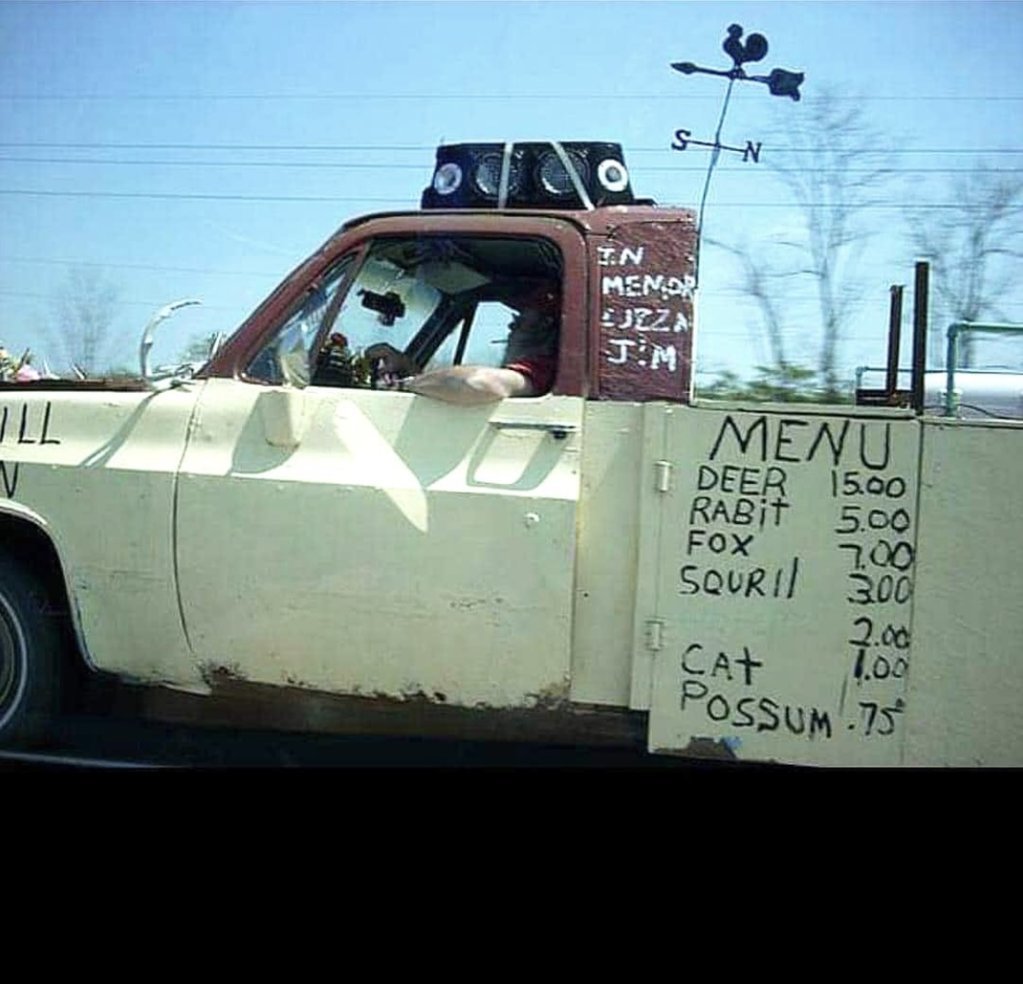 S N
IN
MEMOR
JIM
ILL
N
MENU
DEER 15.00
RABit 5.00
FOX 7.00
SQURIll 3.00
2.00
CAt 1.00
POSSUM .75¢